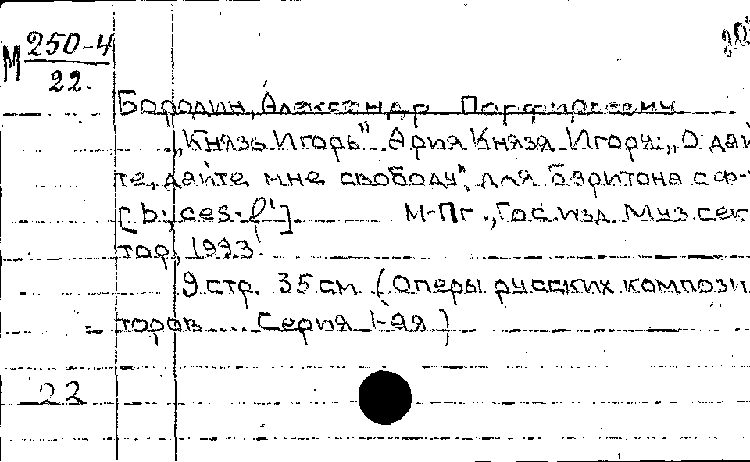 М 250-4
22.
Бородин, Александр Порфирьевич
„Князь Игорь" Ария Князя Игоря: „О дай
те, дайте мне свободу", для баритона с ф-
[b; ces-f¹]. М-Пг., Гос. изд. Муз. сек
тор, 1923
9 стр. 35 см. (Оперы русских компози
торов ... Серия 1-ая)
22